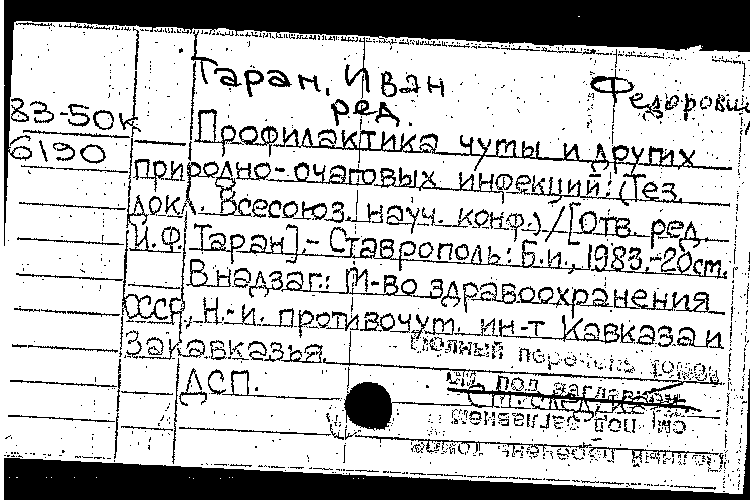 Таран, Иван Федорович
ред.
83-50к
6190
Профилактика чумы и других
природно-очаговых инфекций: (Тез.
докл. Всесоюз. науч. конф.) / [Отв. ред.
И.Ф. Таран]. - Ставрополь: Б.и., 1983. - 20 ст.
В надзаг.: М-во здравоохранения
СССР, Н.-и. противочум. ин-т Кавказа и
Закавказья.
ДСП.
Полный перечень томов
см под заглавием
см под заглавием
Полный перечень томов